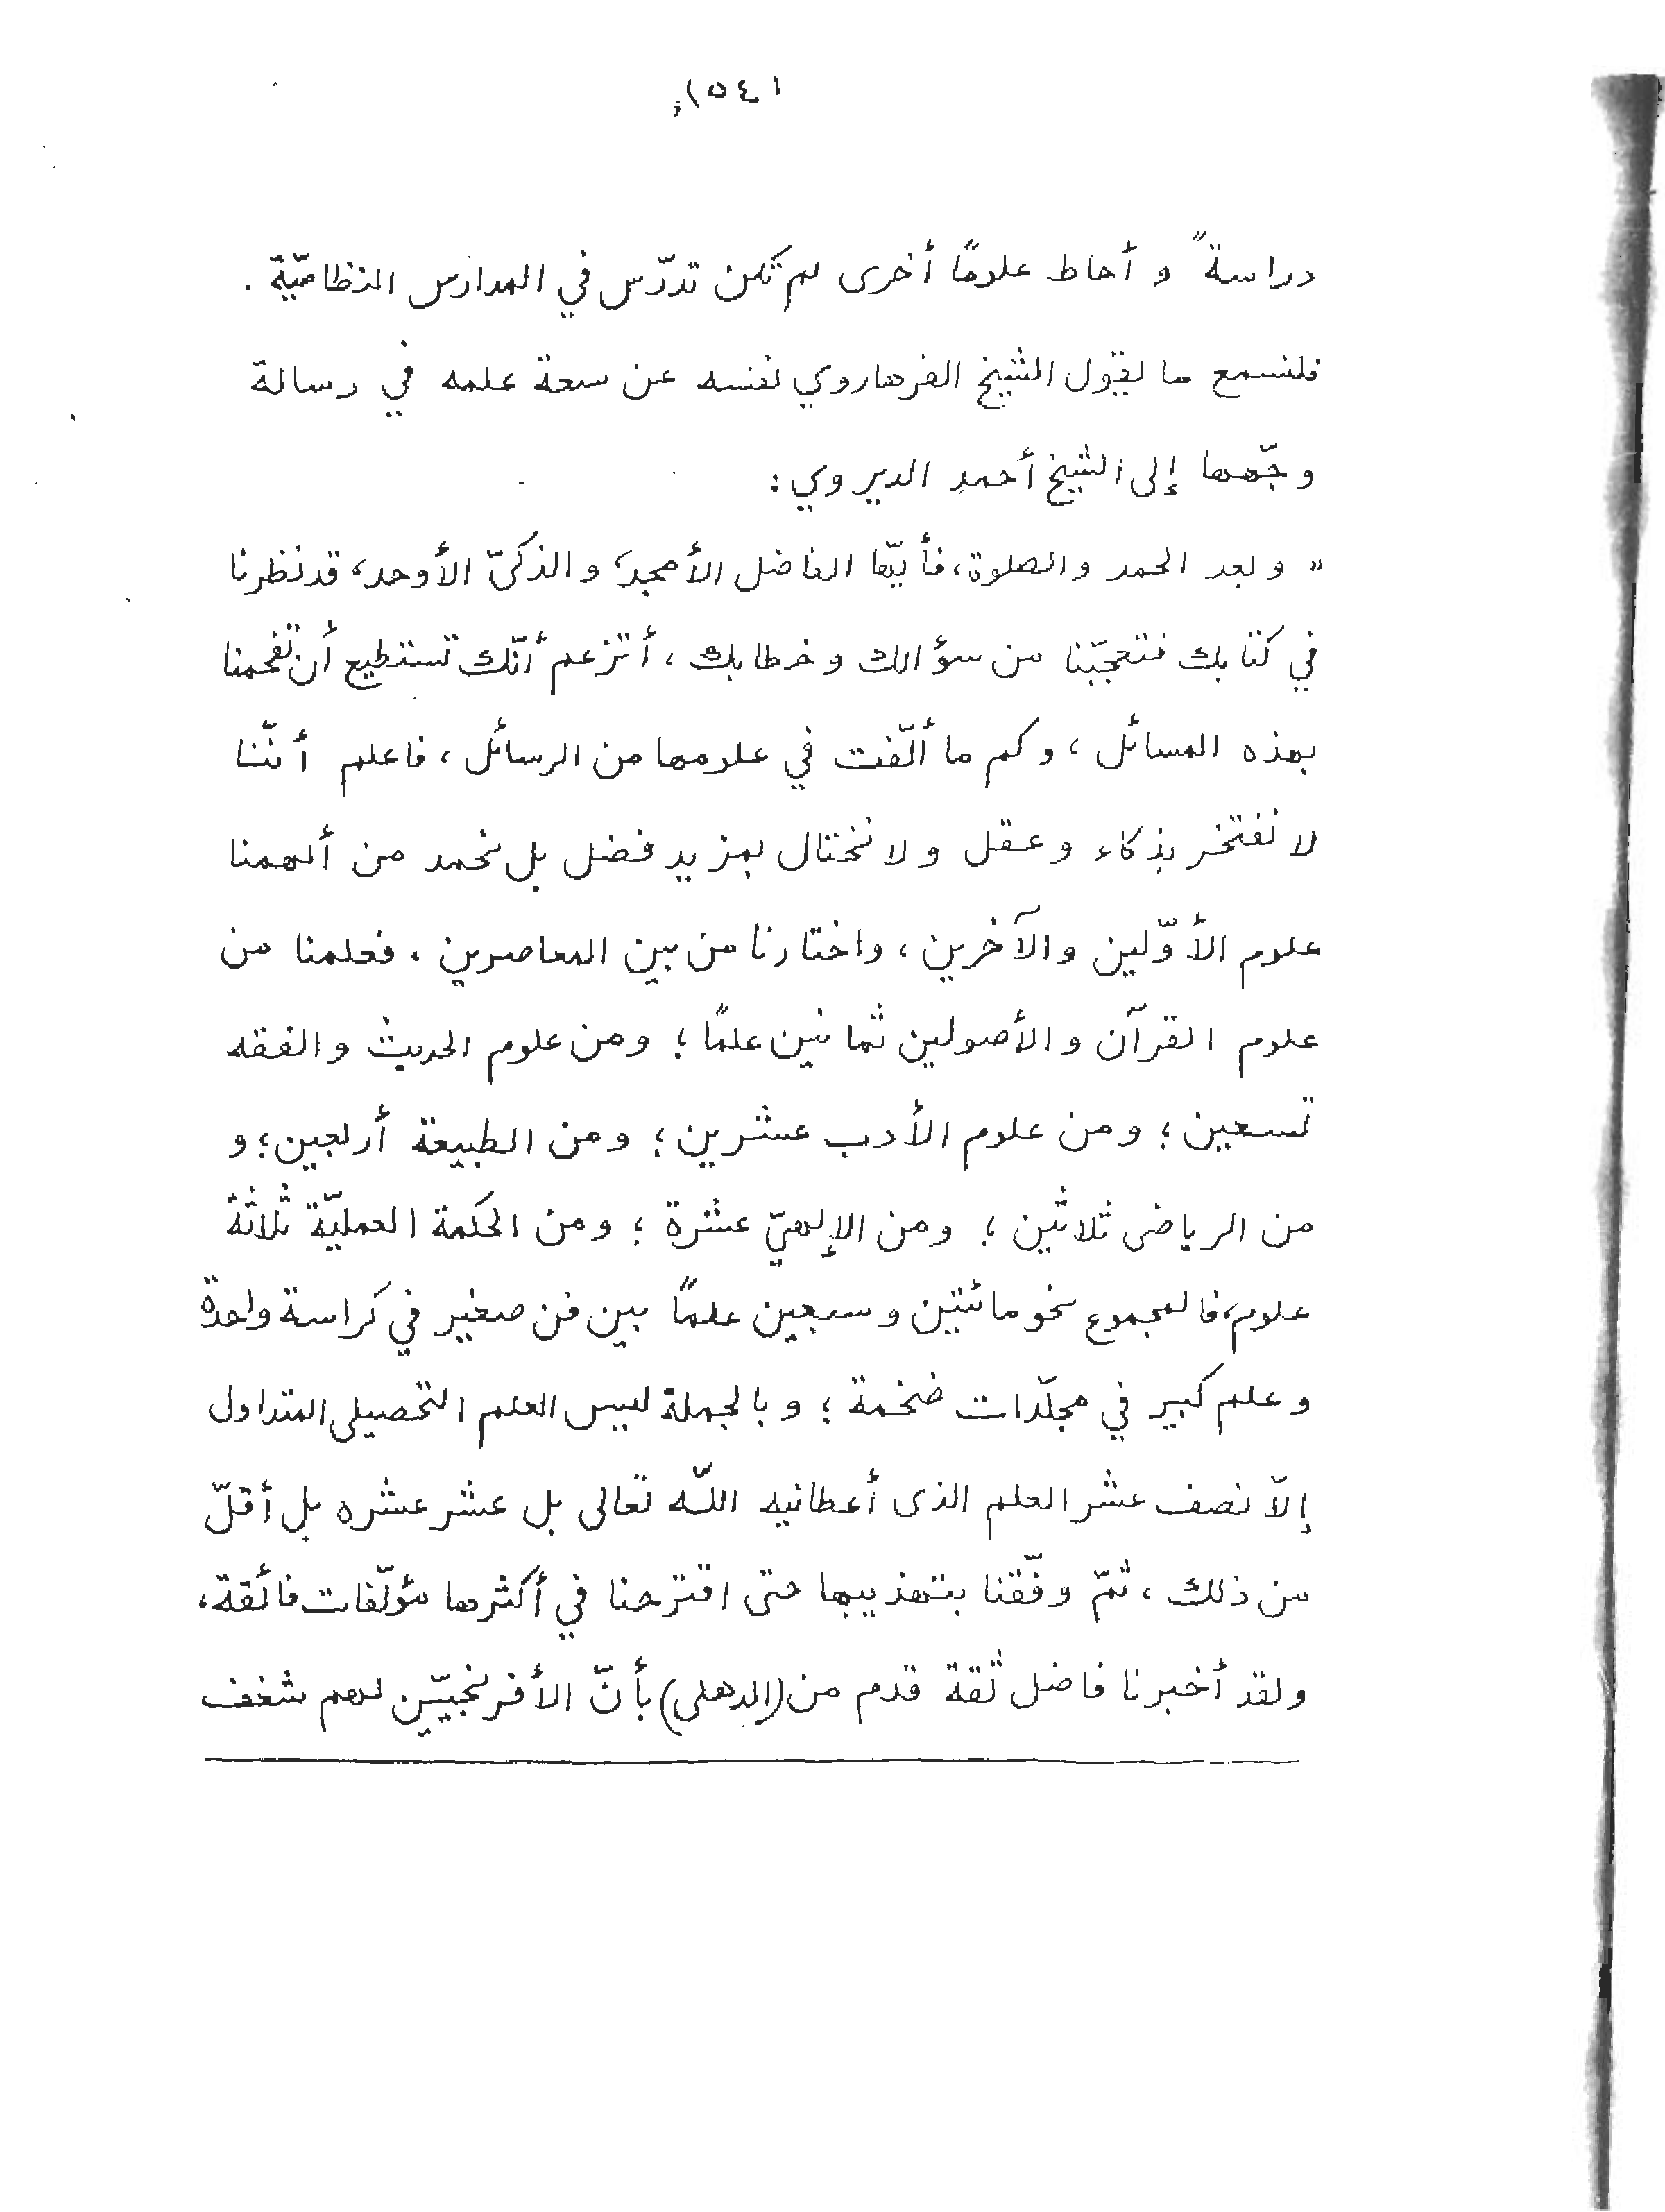 دراسةً و أحاط علومًا أخرى لم تكن تدرّس في المدارس النظاميّة .
فلنسمع ما يقول الشيخ الفرهاروي نفسه عن سعة علمه في رسالة
وجّهها إلى الشيخ أحمد الديروي :
" و بعد الحمد والصلوة، فأيّها الفاضل الأمجد، و الذكيّ الأوحد، قد نظرنا
في كتابك فتعجّبنا من سؤالك و خطابك ، أتزعم أنّك تستطيع أن تفحمنا
بهذه المسائل ، و كم ما ألّفت في علومها من الرسائل ، فاعلم أنّنا
لا نفتخر بذكاء و عقل و لا نختال بمزيد فضل بل نحمد من ألهمنا
علوم الأوّلين والآخرين ، واختارنا من بين المعاصرين ، فعلمنا من
علوم القرآن و الأصولين ثمانين علمًا ؛ ومن علوم الحديث و الفقه
تسعين ؛ ومن علوم الأدب عشرين ؛ ومن الطبيعة أربعين ؛ و
من الرياضى ثلاثين ؛ ومن الإلهيّ عشرة ؛ ومن الحكمة العمليّة ثلاثة
علوم، فالمجموع نحو مائتين وسبعين علمًا بين فن صغير في كراسة واحدة
وعلم كبير في مجلّدات ضخمة ؛ و بالجملة ليس العلم التحصيلى المتداول
إلاّ نصف عشر العلم الذى أعطانيه اللّه تعالى بل عشر عشره بل أقلّ
من ذلك ، ثمّ وفّقنا بتهذيبها حتى اقترحنا في أكثرها مؤلّفات فائقة،
ولقد أخبرنا فاضل ثقة قدم من (الدهلى) بأنّ الأفرنجيّين لهم شغف